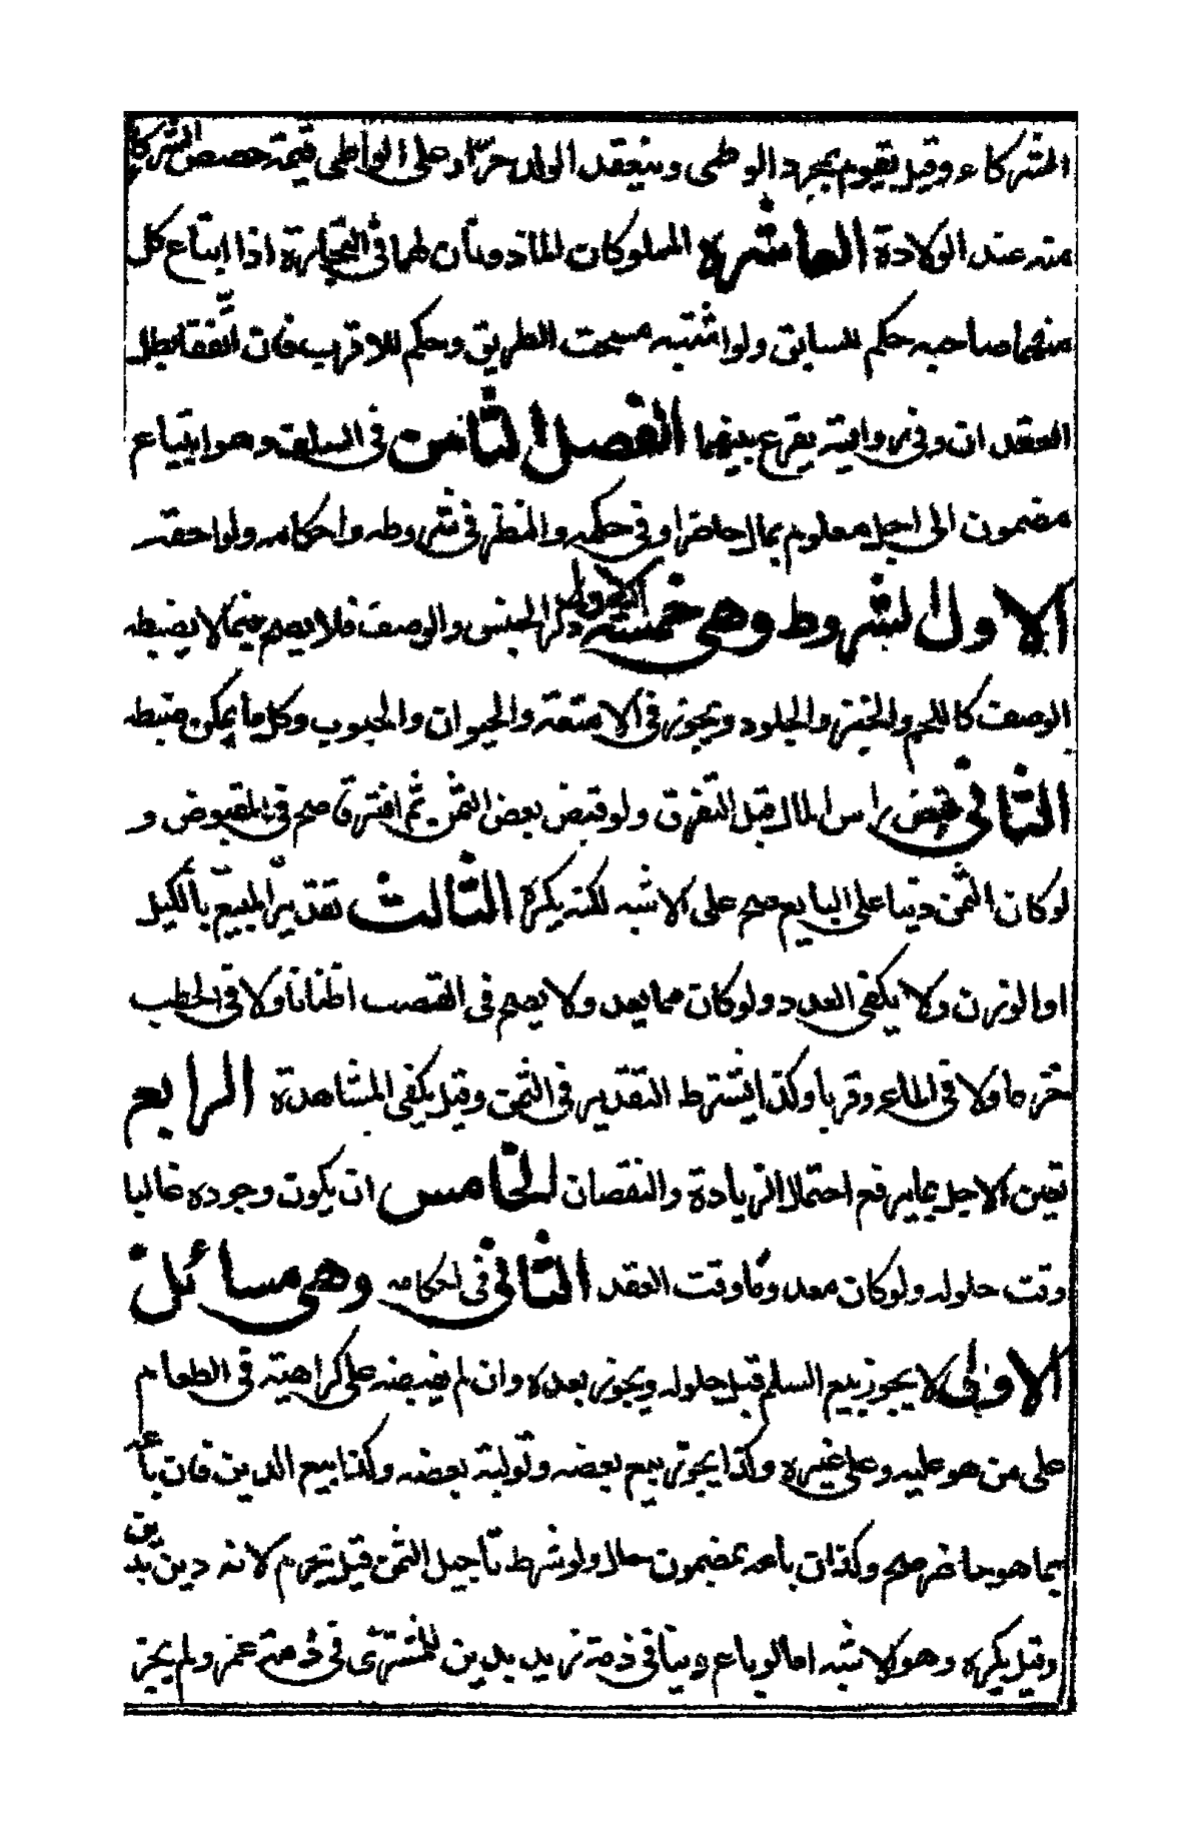 الشركاء وقيل يقوم بمجرد الوطى وينعقد الولد حرّا وعلى الواطى قيمة حصص الشركاء
منه عند الولادة العاشرة المملوكان الماذونان لهما فى التجارة اذا ابتاع كل
منهما صاحبه حكم للسابق ولو اشتبه مسحت الطريق وحكم للاقرب فان اتّفقا بطل
العقدان وفى رواية يقرع بينهما الفصل الثامن فى السلف وهو ابتياع
مضمون الى اجل معلوم بمال حاضر او فى حكمه والنظر فى شروطه واحكامه ولواحقه
الاول الشروط وهى خمسة الاول ذكر الجنس والوصف فلا يصح فيما لا يضبطه
الوصف كاللحم والخبز والجلود ويجوز فى الامتعة والحيوان والحبوب وكل ما يمكن ضبطه
الثانى قبض راس المال قبل التفرق ولو قبض بعض الثمن ثم افترقا صح فى المقبوض و
لو كان الثمن دينا على البايع صح على الاشبه لكنه يكره الثالث تقدير المبيع بالكيل
او الوزن ولا يكفى العدد ولو كان مما يعد ولا يصح فى القصب اطنانا ولا فى الحطب
حزما ولا فى الماء قربا وكذا يشترط التقدير فى الثمن وقيل يكفى المشاهدة الرابع
تعين الاجل بما يرفع احتمال الزيادة والنقصان الخامس ان يكون وجوده غالبا
وقت حلوله ولو كان معدوما وقت العقد الثانى فى احكامه وهى مسائل
الاولى لا يجوز بيع السلم قبل حلوله ويجوز بعده وان لم يقبضه على كراهية فى الطعام
على من هو عليه وعلى غيره وكذا يجوز بيع بعضه وتولية بعضه وكذا بيع الدين فان باعه
بما هو حاضر صح وكذا ان باعه بمضمون حال ولو شرط تاجيل الثمن قيل يحرم لانه دين بدين
وقيل يكره وهو الاشبه اما لو باع دينا فى ذمة زيد بدين للمشترى فى ذمة عمر ولم يجز